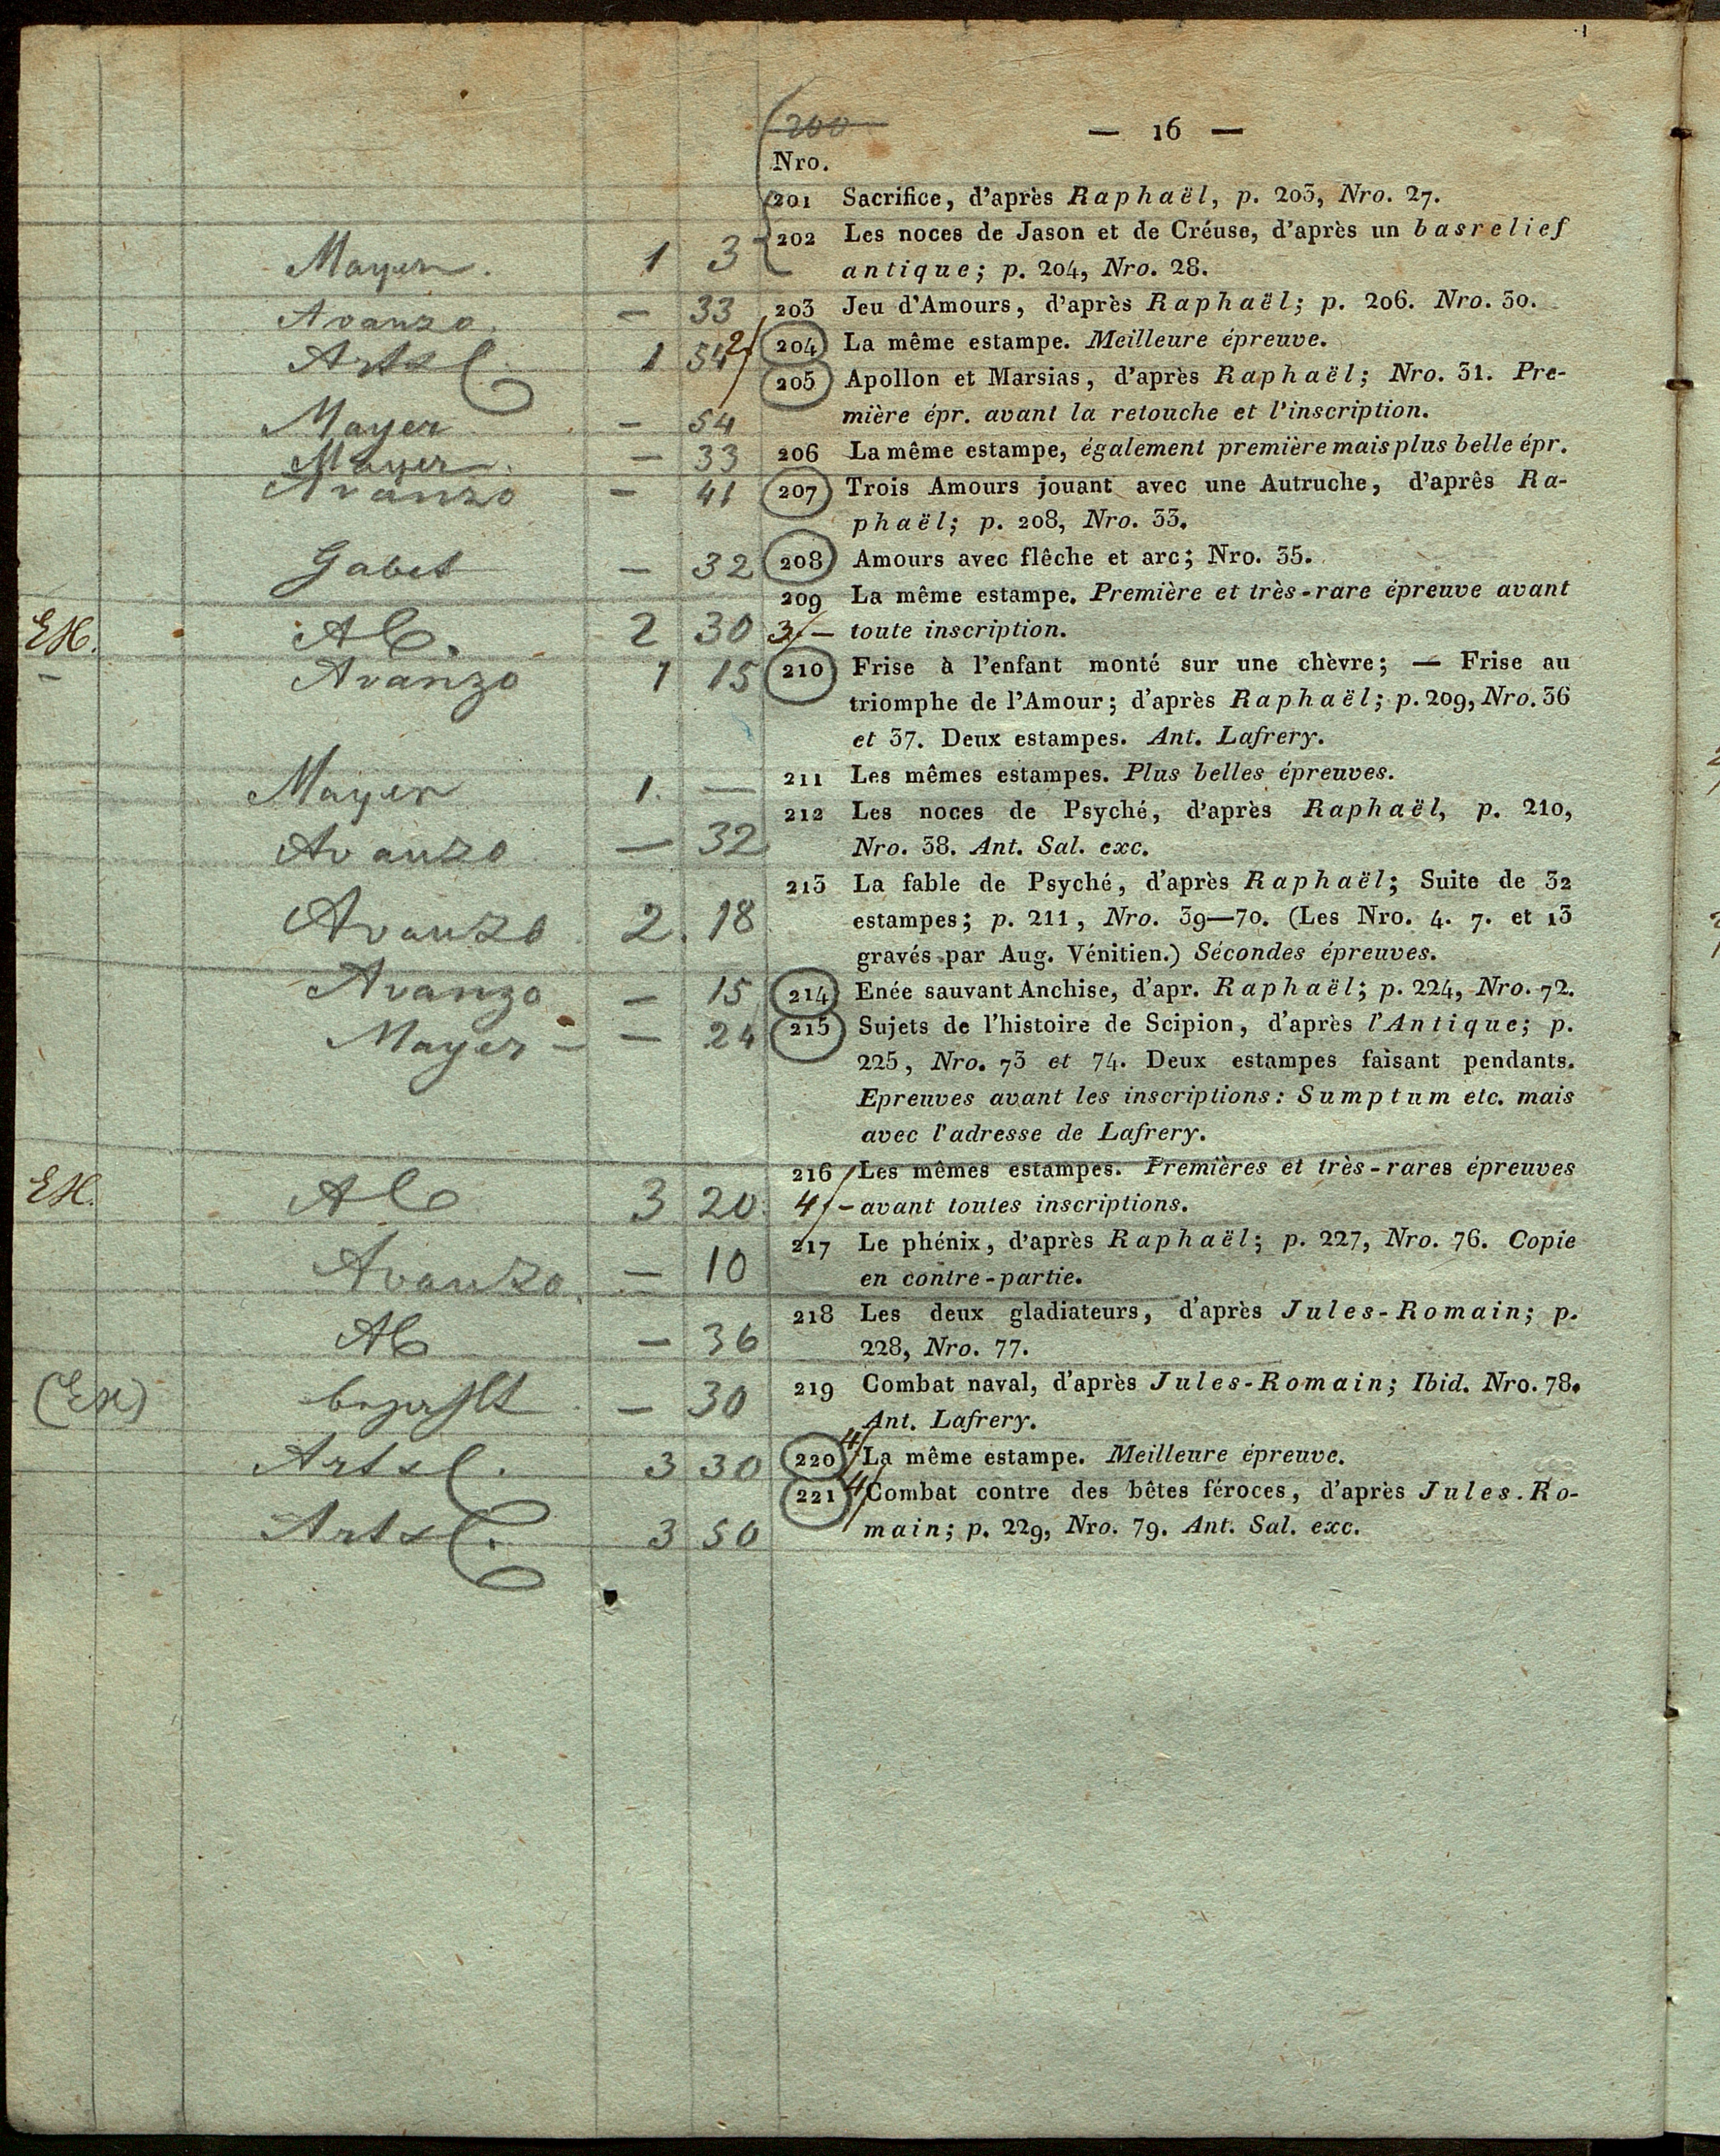 200
— 16 —
Nro.
201 Sacrifice, d'après Raphaël, p. 203, Nro. 27.
202 Les noces de Jason et de Créuse, d'après un basrelief
Mayer. 1 3 antique; p. 204, Nro. 28.
Avanzo. — 33 203 Jeu d'Amours, d'après Raphaël; p. 206. Nro. 30.
Arta 1 54 2/ 204 La même estampe. Meilleure épreuve.
205 Apollon et Marsias, d'après Raphaël; Nro. 31. Pre-
Mayer — 54 mière épr. avant la retouche et l'inscription.
Mayer. — 33 206 La même estampe, également première mais plus belle épr.
Avanzo — 41 207 Trois Amours jouant avec une Autruche, d'après Ra-
phaël; p. 208, Nro. 33.
Gabet — 32 208 Amours avec flêche et arc; Nro. 35.
209 La même estampe. Première et très-rare épreuve avant
EH. Alb. 2 30 3/— toute inscription.
— Avanzo 1 15 210 Frise à l'enfant monté sur une chèvre; — Frise au
triomphe de l'Amour; d'après Raphaël; p. 209, Nro. 36
et 37. Deux estampes. Ant. Lafrery.
Mayer 1. — 211 Les mêmes estampes. Plus belles épreuves.
212 Les noces de Psyché, d'après Raphaël, p. 210,
Avanzo — 32 Nro. 38. Ant. Sal. exc.
213 La fable de Psyché, d'après Raphaël; Suite de 32
Avanzo 2. 18 estampes; p. 211, Nro. 39—70. (Les Nro. 4. 7. et 13
gravés par Aug. Vénitien.) Sécondes épreuves.
Avanzo — 15 214 Enée sauvant Anchise, d'apr. Raphaël; p. 224, Nro. 72.
Mayer — — 24 215 Sujets de l'histoire de Scipion, d'après l'Antique; p.
225, Nro. 73 et 74. Deux estampes faisant pendants.
Epreuves avant les inscriptions: Sumptum etc. mais
avec l'adresse de Lafrery.
216 Les mêmes estampes. Premières et très-rares épreuves
EH. Alb 3 20. 4/— avant toutes inscriptions.
217 Le phénix, d'après Raphaël; p. 227, Nro. 76. Copie
Avanzo. — 10 en contre-partie.
218 Les deux gladiateurs, d'après Jules-Romain; p.
Alb — 36 228, Nro. 77.
(EH) — 30 219 Combat naval, d'après Jules-Romain; Ibid. Nro. 78.
Ant. Lafrery.
Arta. 3 30 220 4/ La même estampe. Meilleure épreuve.
221 4/ Combat contre des bêtes féroces, d'après Jules-Ro-
Arta. 3 50 main; p. 229, Nro. 79. Ant. Sal. exc.